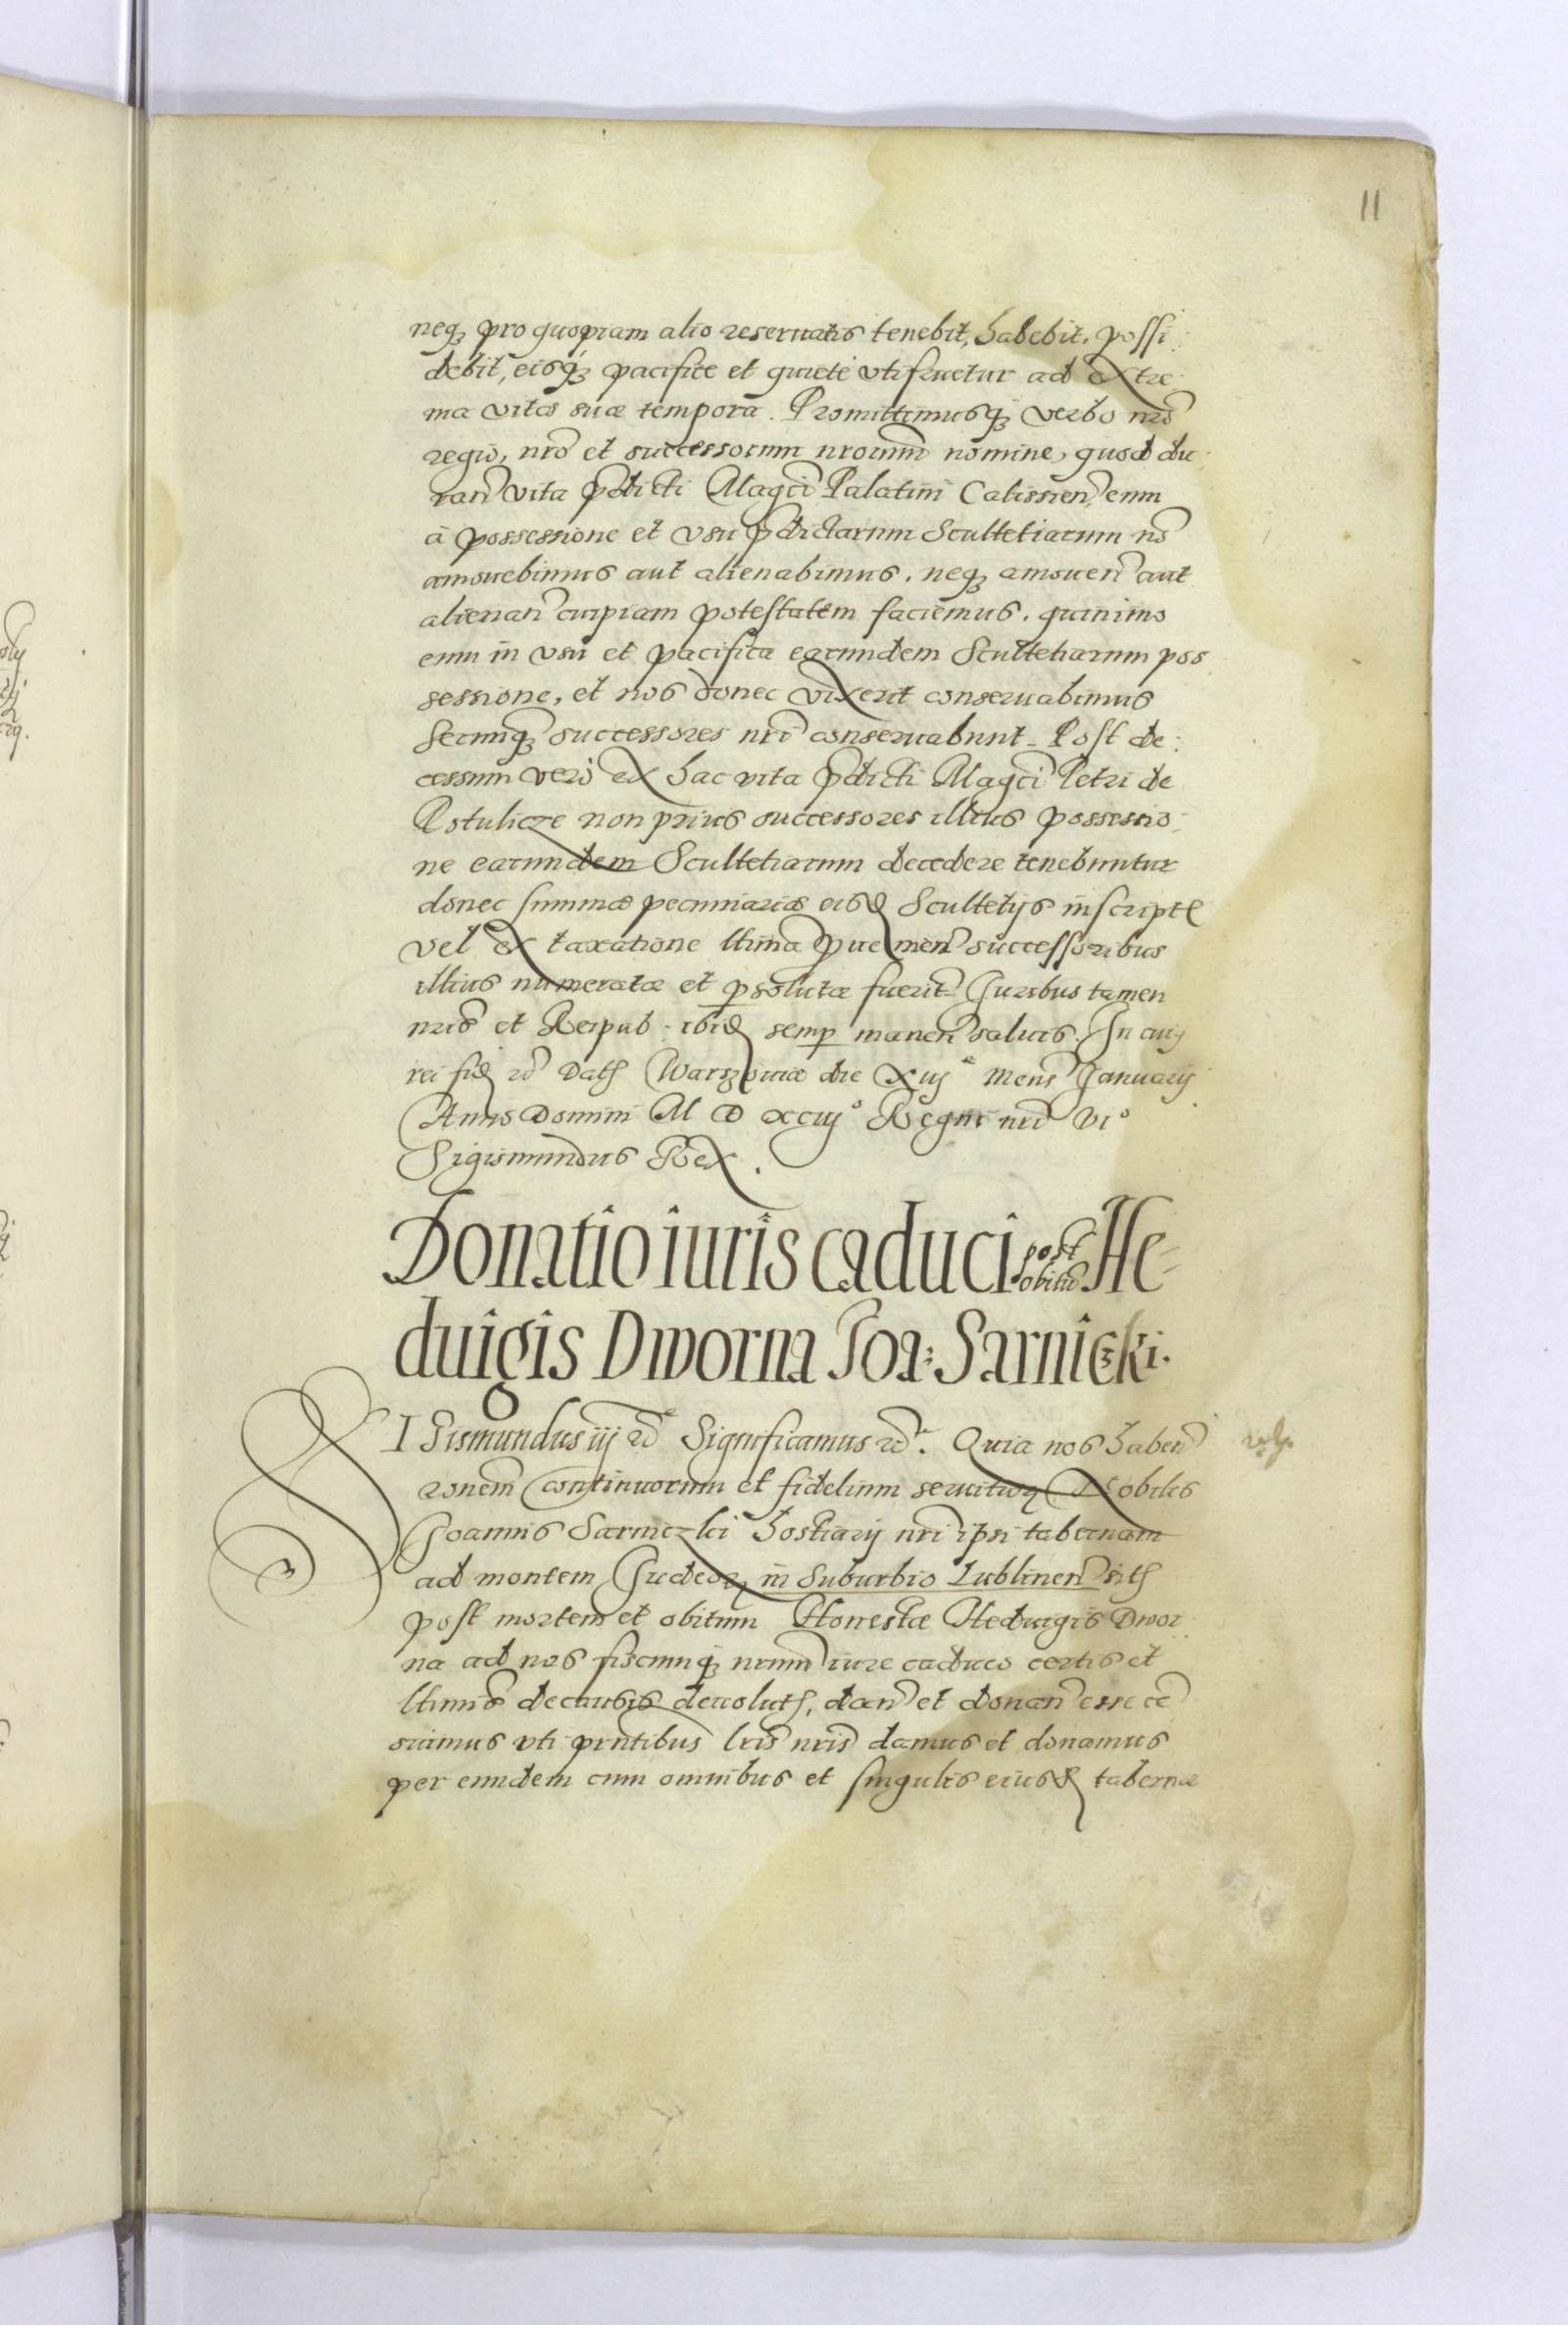 11
neq3 pro quopiam alio reseruatis tenebit, habebit, possi
debit, eisq3 pacifice et quiete vtifruetur ad extre
ma vitæ suæ tempora. Promittimusq3 verbo nrō
regio, nrō et successorum nrorum nomine, quod du
ran vita pdicti Magci Palatini Calissien, eum
à possessione et vsu pdictarum Scultetiarum nō
amouebimus aut alienabimus, neq3 amouen aut
alienan cuipiam potestatem faciemus, quinimo
eum in vsu et pacifica earundem Scultetiarum pos
sessione, et nos donec vixerit conseruabimus
Serimiq3 successores nri conseruabunt. Post de
cessum verò ex hac vita pdicti Magci Petri de
Potulicze non prius successores illius possessio
ne earundem Scultetiarum decedere tenebuntur
donec summæ pecuniariæ eisd Scultetijs inscriptę
vel ex taxatione ltima puemen successoribus
illius numeratæ et psolutæ fuerit. Juribus tamen
nris et Reipub. ibid semp manen saluis. In cuiq
rei fid ec Dat Warszouiæ die xiij mens Januarij
Anno Domini M D xciij° Regni nri vi°
Sigismundus Rex.
Donatio iuris caduci post obitu He-
duigis Dworna Joa: Sarniczki.
SIGismundus iij ec Significamus ec. Quia nos haben
ronem continuorum et fidelium seruitior Nobilis
Joannis Sarniczki hostiarij nri ipsi tabernam
ad montem Judeor in Suburbio Lublinen sit
post mortem et obitum Honestæ Heduigis Dwor
na ad nos fiscumq3 nrum iure caduco certis et
ltimis de causis deuolut, dan et donan esse ce
suimus vti pntibus lris nris damus et donamus
per eundem cum omnibus et singulis eiusd tabernæ